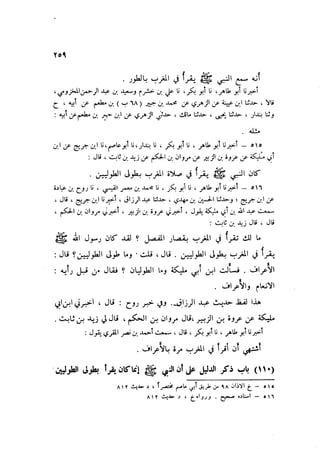 ٢٥٩
أنه سمع النبي ﷺ يقرأ في المغرب بالطور .
أخبرنا أبو طاهر ، نا أبو بكر ، نا علي بن خشرم وسعيد بن عبد الرحمن المخزومي ،
قالا ، حدثنا ابن عيينة عن الزهري عن محمد بن جبير ( ٦٨ ب ) بن مطعم عن أبيه ، ح
وثنا بندار ، حدثنا يحيى ، حدثنا مالك ، حدثني الزهري عن ابن جبير بن مطعم عن أبيه :
مثله .
٥١٥ – أخبرنا أبو طاهر ، نا أبو بكر ، نا بندار ، نا أبو عاصم ، نا ابن جريج عن ابن
أبي مليكة عن عروة بن الزبير عن مروان بن الحكم عن زيد بن ثابت ، قال :
كان النبي ﷺ يقرأ في صلاة المغرب بطولى الطوليين .
٥١٦ – أخبرنا أبو طاهر ، نا أبو بكر ، نا محمد بن معمر القيسي ، نا روح بن عبادة
عن ابن جريج ، ح وحدثنا الحسين بن مهدي ، حدثنا عبد الرزاق ، أخبرني ابن جريج ، قال ،
سمعت عبد الله بن أبي مليكة يقول ، أخبرني عروة بن الزبير ، أخبرني مروان بن الحكم ،
قال ، قال زيد بن ثابت :
ما لك تقرأ في المغرب بقصار المفصل ؟ لقد كان رسول الله ﷺ
يقرأ في المغرب بطولى الطوليين . قال ، قلت : وما طولى الطوليين ؟ قال :
الأعراف . فسألت ابن أبي مليكة وما الطوليان ؟ فقال من قبل رأيه :
الانعام والأعراف .
هذا لفظ حديث عبد الرزاق . وفي خبر روح : قال ، أخبرني ابن أبي
مليكة عن عروة بن الزبير قال ، مروان بن الحكم ، قال لي زيد بن ثابت .
أخبرنا أبو طاهر ، نا أبو بكر ، قال ، سمعت أحمد بن نصر المقرئ يقول :
أشتهي أن أقرأ في المغرب مرة بالأعراف .
(١١٠) باب ذكر الدليل على أن النبي ﷺ إنما كان يقرأ بطولى الطوليين
٥١٥ – خ الأذان ٩٨ من طريق أبي عاصم مختصراً ، د حديث ٨١٢
٥١٦ – اسناده صحيح . ورواه خ ، د حديث ٨١٢